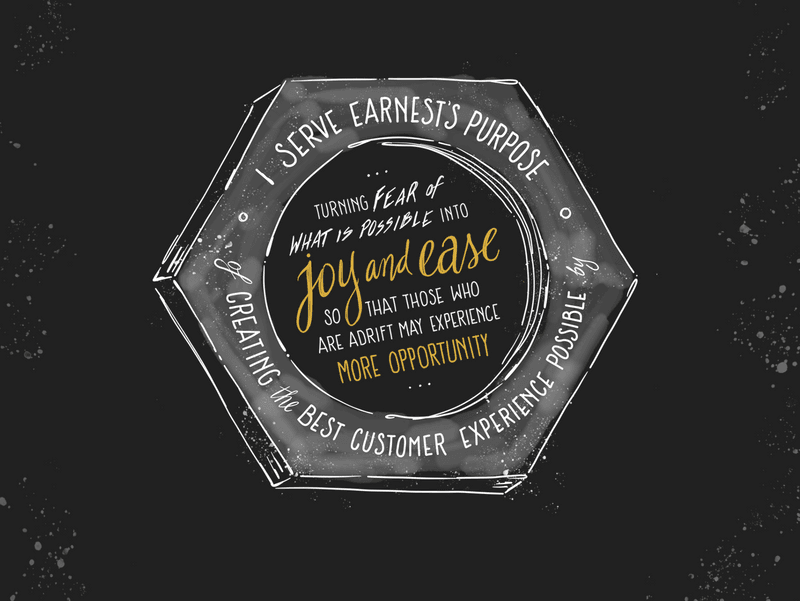 I SERVE EARNEST'S PURPOSE
of CREATING the BEST CUSTOMER EXPERIENCE POSSIBLE by
...
TURNING FEAR of
WHAT IS POSSIBLE INTO
joy and ease
SO THAT THOSE WHO
ARE ADRIFT MAY EXPERIENCE
MORE OPPORTUNITY
...